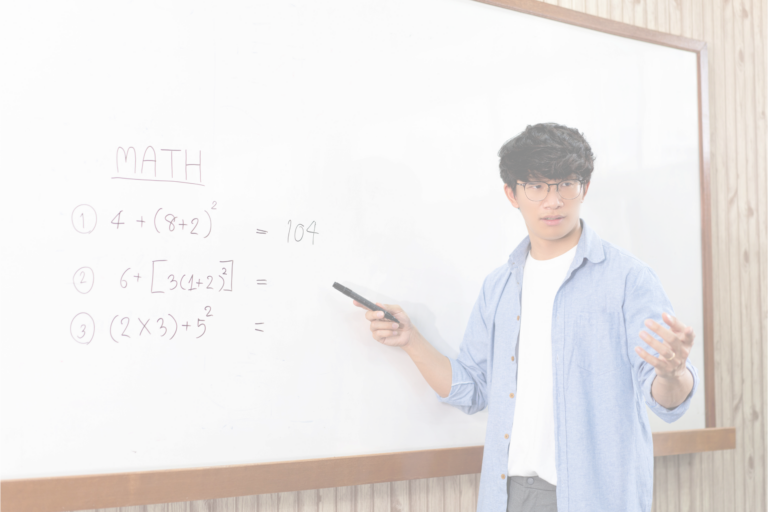 MATH
① 4 + (8+2)² = 104
② 6+ [3(1+2)²] =
③ (2×3)+5² =